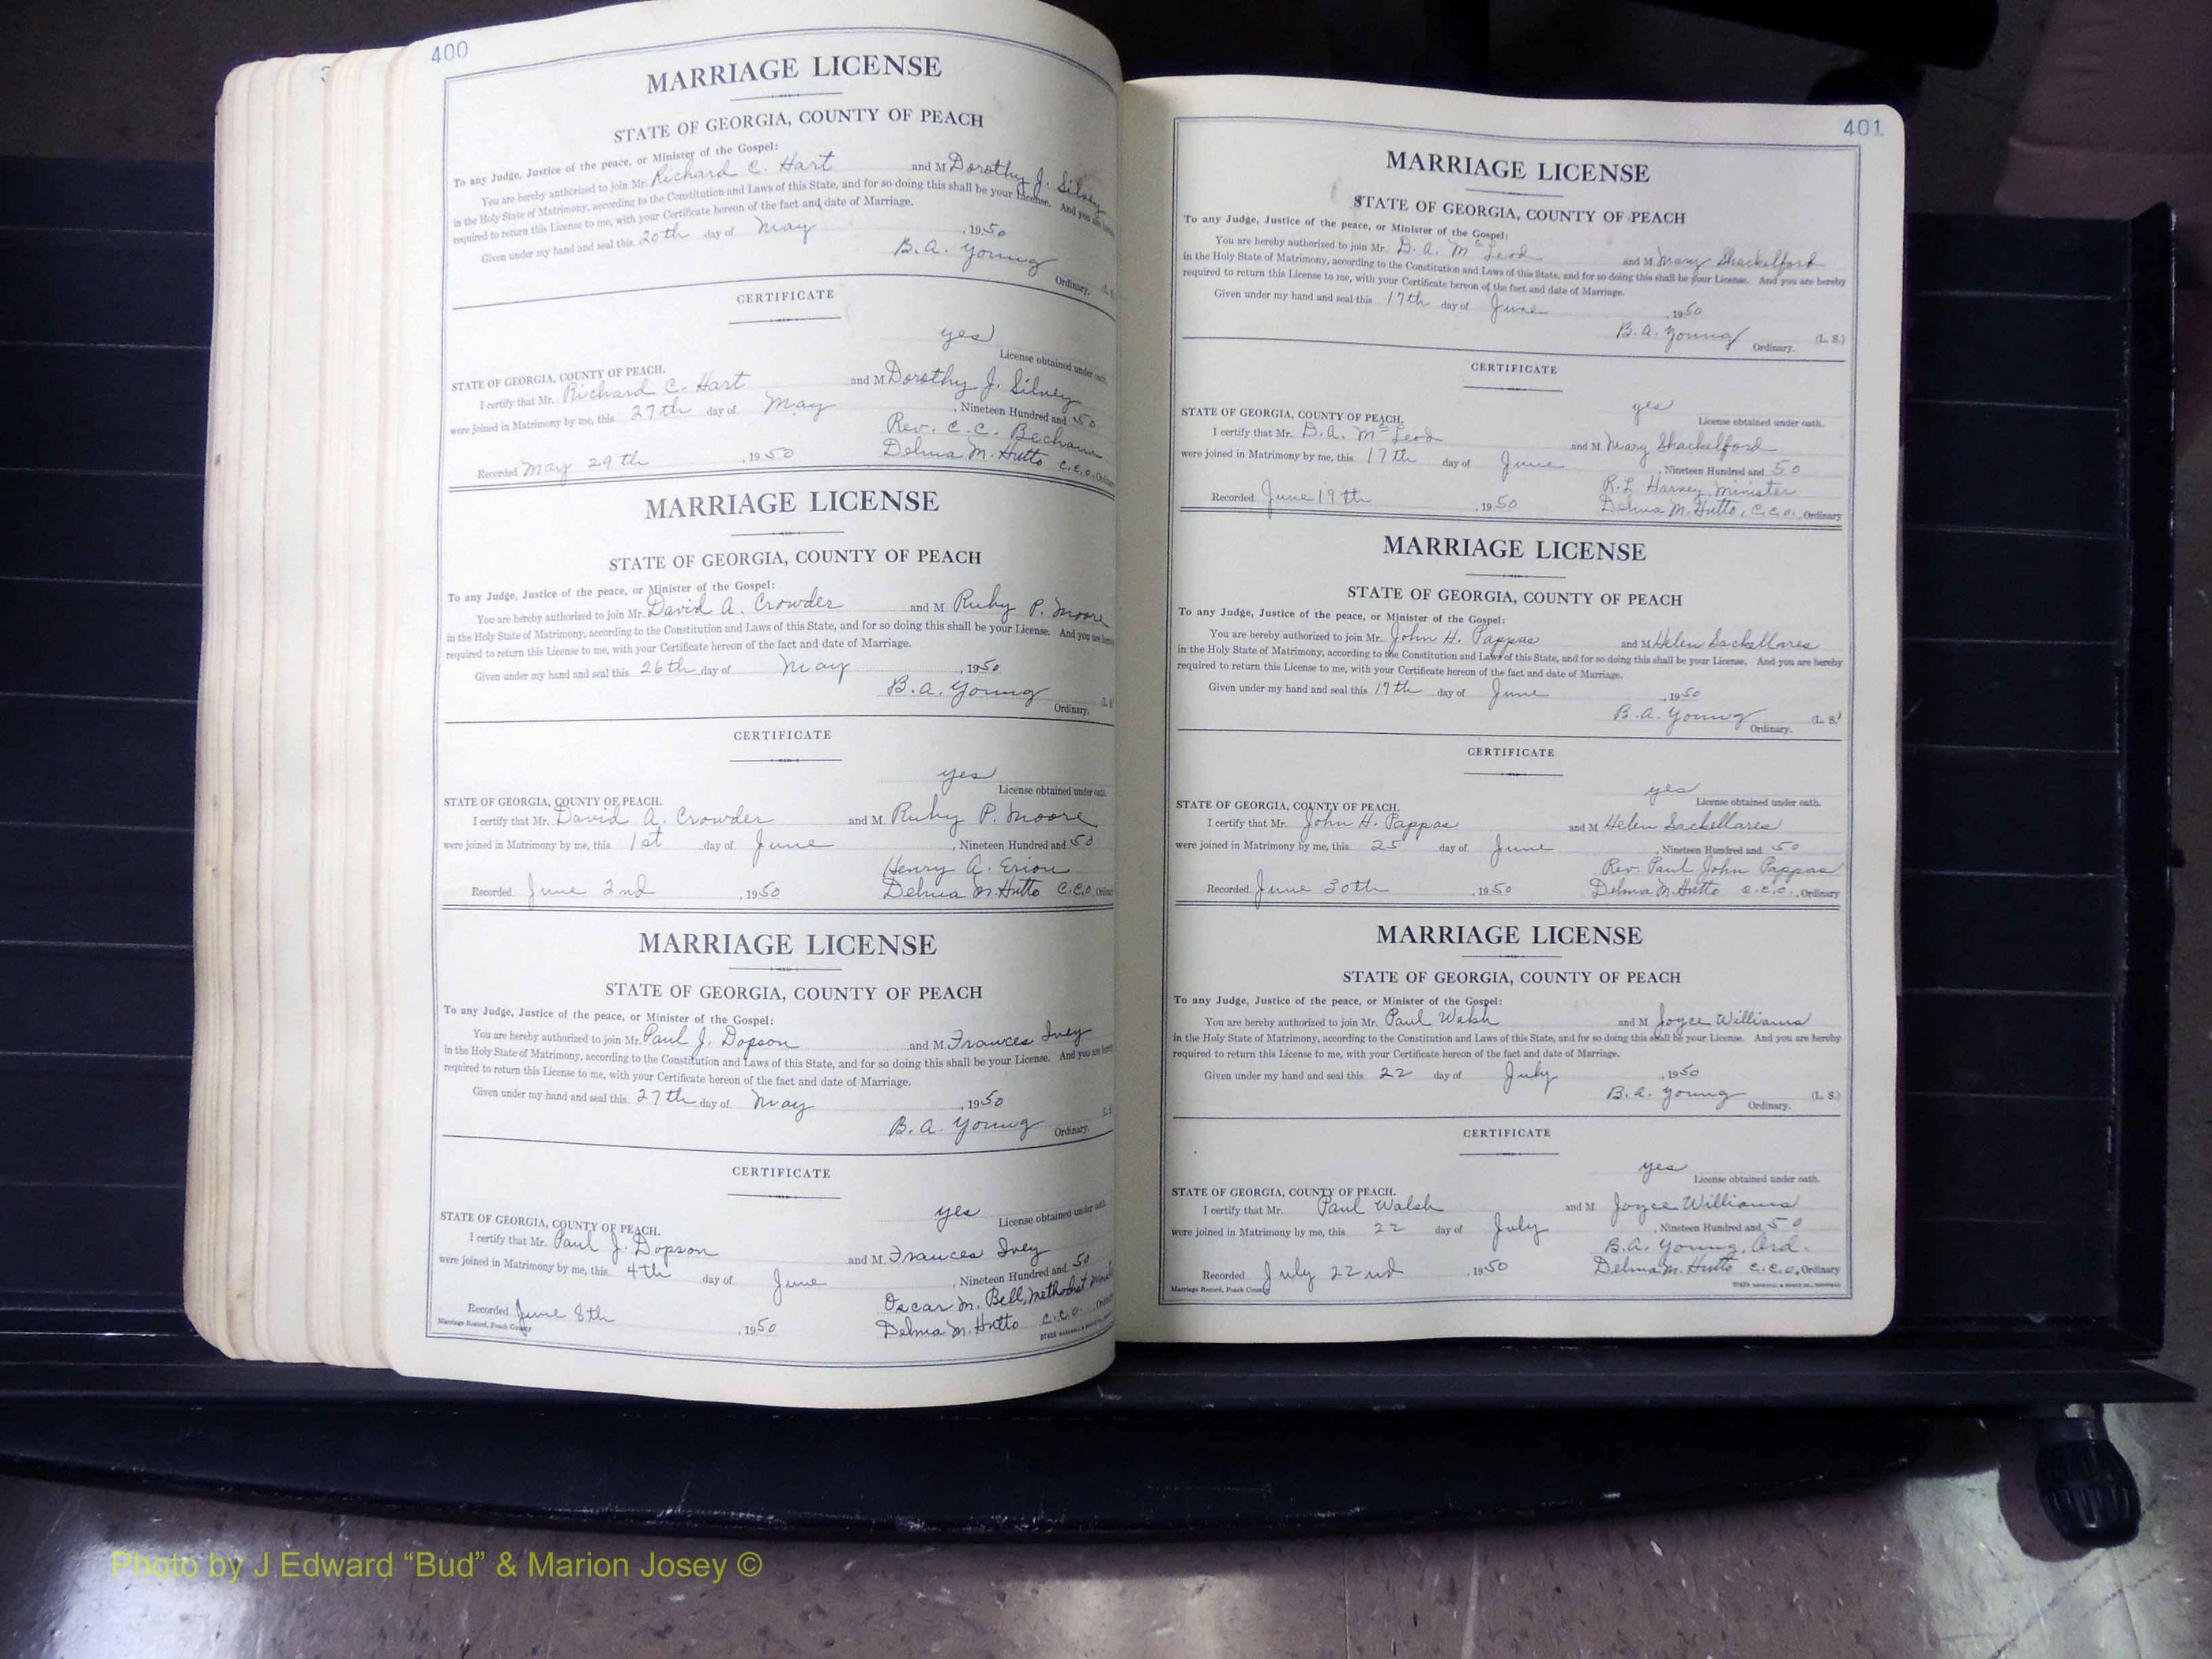 400
MARRIAGE LICENSE
STATE OF GEORGIA, COUNTY OF PEACH
To any Judge, Justice of the peace, or Minister of the Gospel:
You are hereby authorized to join Mr. Richard C. Hart and M Dorothy J. Silvey
in the Holy State of Matrimony, according to the Constitution and Laws of this State, and for so doing this shall be your License. And you are
required to return this License to me, with your Certificate hereon of the fact and date of Marriage.
Given under my hand and seal this 20th day of May, 1950
B.A. Young
Ordinary.
CERTIFICATE
yes
License obtained under oath.
STATE OF GEORGIA, COUNTY OF PEACH.
I certify that Mr. Richard C. Hart and M Dorothy J. Silvey
were joined in Matrimony by me, this 27th day of May, Nineteen Hundred and 50
Rev. C. C.
Recorded May 29th, 1950 Delma M. Hutto C.C.O.
MARRIAGE LICENSE
STATE OF GEORGIA, COUNTY OF PEACH
To any Judge, Justice of the peace, or Minister of the Gospel:
You are hereby authorized to join Mr. David A. Crowder and M Ruby P. Moore
in the Holy State of Matrimony, according to the Constitution and Laws of this State, and for so doing this shall be your License. And you are
required to return this License to me, with your Certificate hereon of the fact and date of Marriage.
Given under my hand and seal this 26th day of May, 1950
B.A. Young
Ordinary.
CERTIFICATE
yes
License obtained under oath.
STATE OF GEORGIA, COUNTY OF PEACH.
I certify that Mr. David A. Crowder and M. Ruby P. Moore
were joined in Matrimony by me, this 1st day of June, Nineteen Hundred and 50
Henry A.
Recorded June 2nd, 1950 Delma M. Hutto C.C.O.
MARRIAGE LICENSE
STATE OF GEORGIA, COUNTY OF PEACH
To any Judge, Justice of the peace, or Minister of the Gospel:
You are hereby authorized to join Mr. Paul J. Dopson and M Frances Ivey
in the Holy State of Matrimony, according to the Constitution and Laws of this State, and for so doing this shall be your License. And you are
required to return this License to me, with your Certificate hereon of the fact and date of Marriage.
Given under my hand and seal this 27th day of May, 1950
B.A. Young
Ordinary.
CERTIFICATE
yes
License obtained under oath
STATE OF GEORGIA, COUNTY OF PEACH.
I certify that Mr. Paul J. Dopson and M. Frances Ivey
were joined in Matrimony by me, this 4th day of June, Nineteen Hundred and 50
Oscar M. Bell, Methodist
Recorded June 8th, 1950 Delma M. Hutto C.C.O.
Marriage Record, Peach County
401
MARRIAGE LICENSE
STATE OF GEORGIA, COUNTY OF PEACH
To any Judge, Justice of the peace, or Minister of the Gospel:
You are hereby authorized to join Mr. D. A. McLeod and M Mary Shackelford
in the Holy State of Matrimony, according to the Constitution and Laws of this State, and for so doing this shall be your License. And you are hereby
required to return this License to me, with your Certificate hereon of the fact and date of Marriage.
Given under my hand and seal this 17th day of June, 1950
B.A. Young (L. S.)
Ordinary.
CERTIFICATE
yes
License obtained under oath.
STATE OF GEORGIA, COUNTY OF PEACH.
I certify that Mr. D.A. McLeod and M Mary Shackelford
were joined in Matrimony by me, this 17th day of June, Nineteen Hundred and 50
R.L. Harvey, Minister
Recorded June 19th, 1950 Delma M. Hutto, C.C.O., Ordinary
MARRIAGE LICENSE
STATE OF GEORGIA, COUNTY OF PEACH
To any Judge, Justice of the peace, or Minister of the Gospel:
You are hereby authorized to join Mr. John H. Pappas and M Helen Sackellares
in the Holy State of Matrimony, according to the Constitution and Laws of this State, and for so doing this shall be your License. And you are hereby
required to return this License to me, with your Certificate hereon of the fact and date of Marriage.
Given under my hand and seal this 19th day of June, 1950
B.A. Young (L. S.)
Ordinary.
CERTIFICATE
yes
License obtained under oath.
STATE OF GEORGIA, COUNTY OF PEACH.
I certify that Mr. John H. Pappas and M Helen Sackellares
were joined in Matrimony by me, this 25 day of June, Nineteen Hundred and 50
Rev. Paul John Pappas
Recorded June 30th, 1950 Delma M. Hutto C.C.O., Ordinary
MARRIAGE LICENSE
STATE OF GEORGIA, COUNTY OF PEACH
To any Judge, Justice of the peace, or Minister of the Gospel:
You are hereby authorized to join Mr. Paul Walsh and M Joyce Williams
in the Holy State of Matrimony, according to the Constitution and Laws of this State, and for so doing this shall be your License. And you are hereby
required to return this License to me, with your Certificate hereon of the fact and date of Marriage.
Given under my hand and seal this 22 day of July, 1950
B.A. Young (L. S.)
Ordinary.
CERTIFICATE
yes
License obtained under oath.
STATE OF GEORGIA, COUNTY OF PEACH.
I certify that Mr. Paul Walsh and M Joyce Williams
were joined in Matrimony by me, this 22 day of July, Nineteen Hundred and 50
B.A. Young, Ord.
Recorded July 22nd, 1950 Delma M. Hutto C.C.O., Ordinary
Marriage Record, Peach County
Photo by J.Edward “Bud” & Marion Josey ©